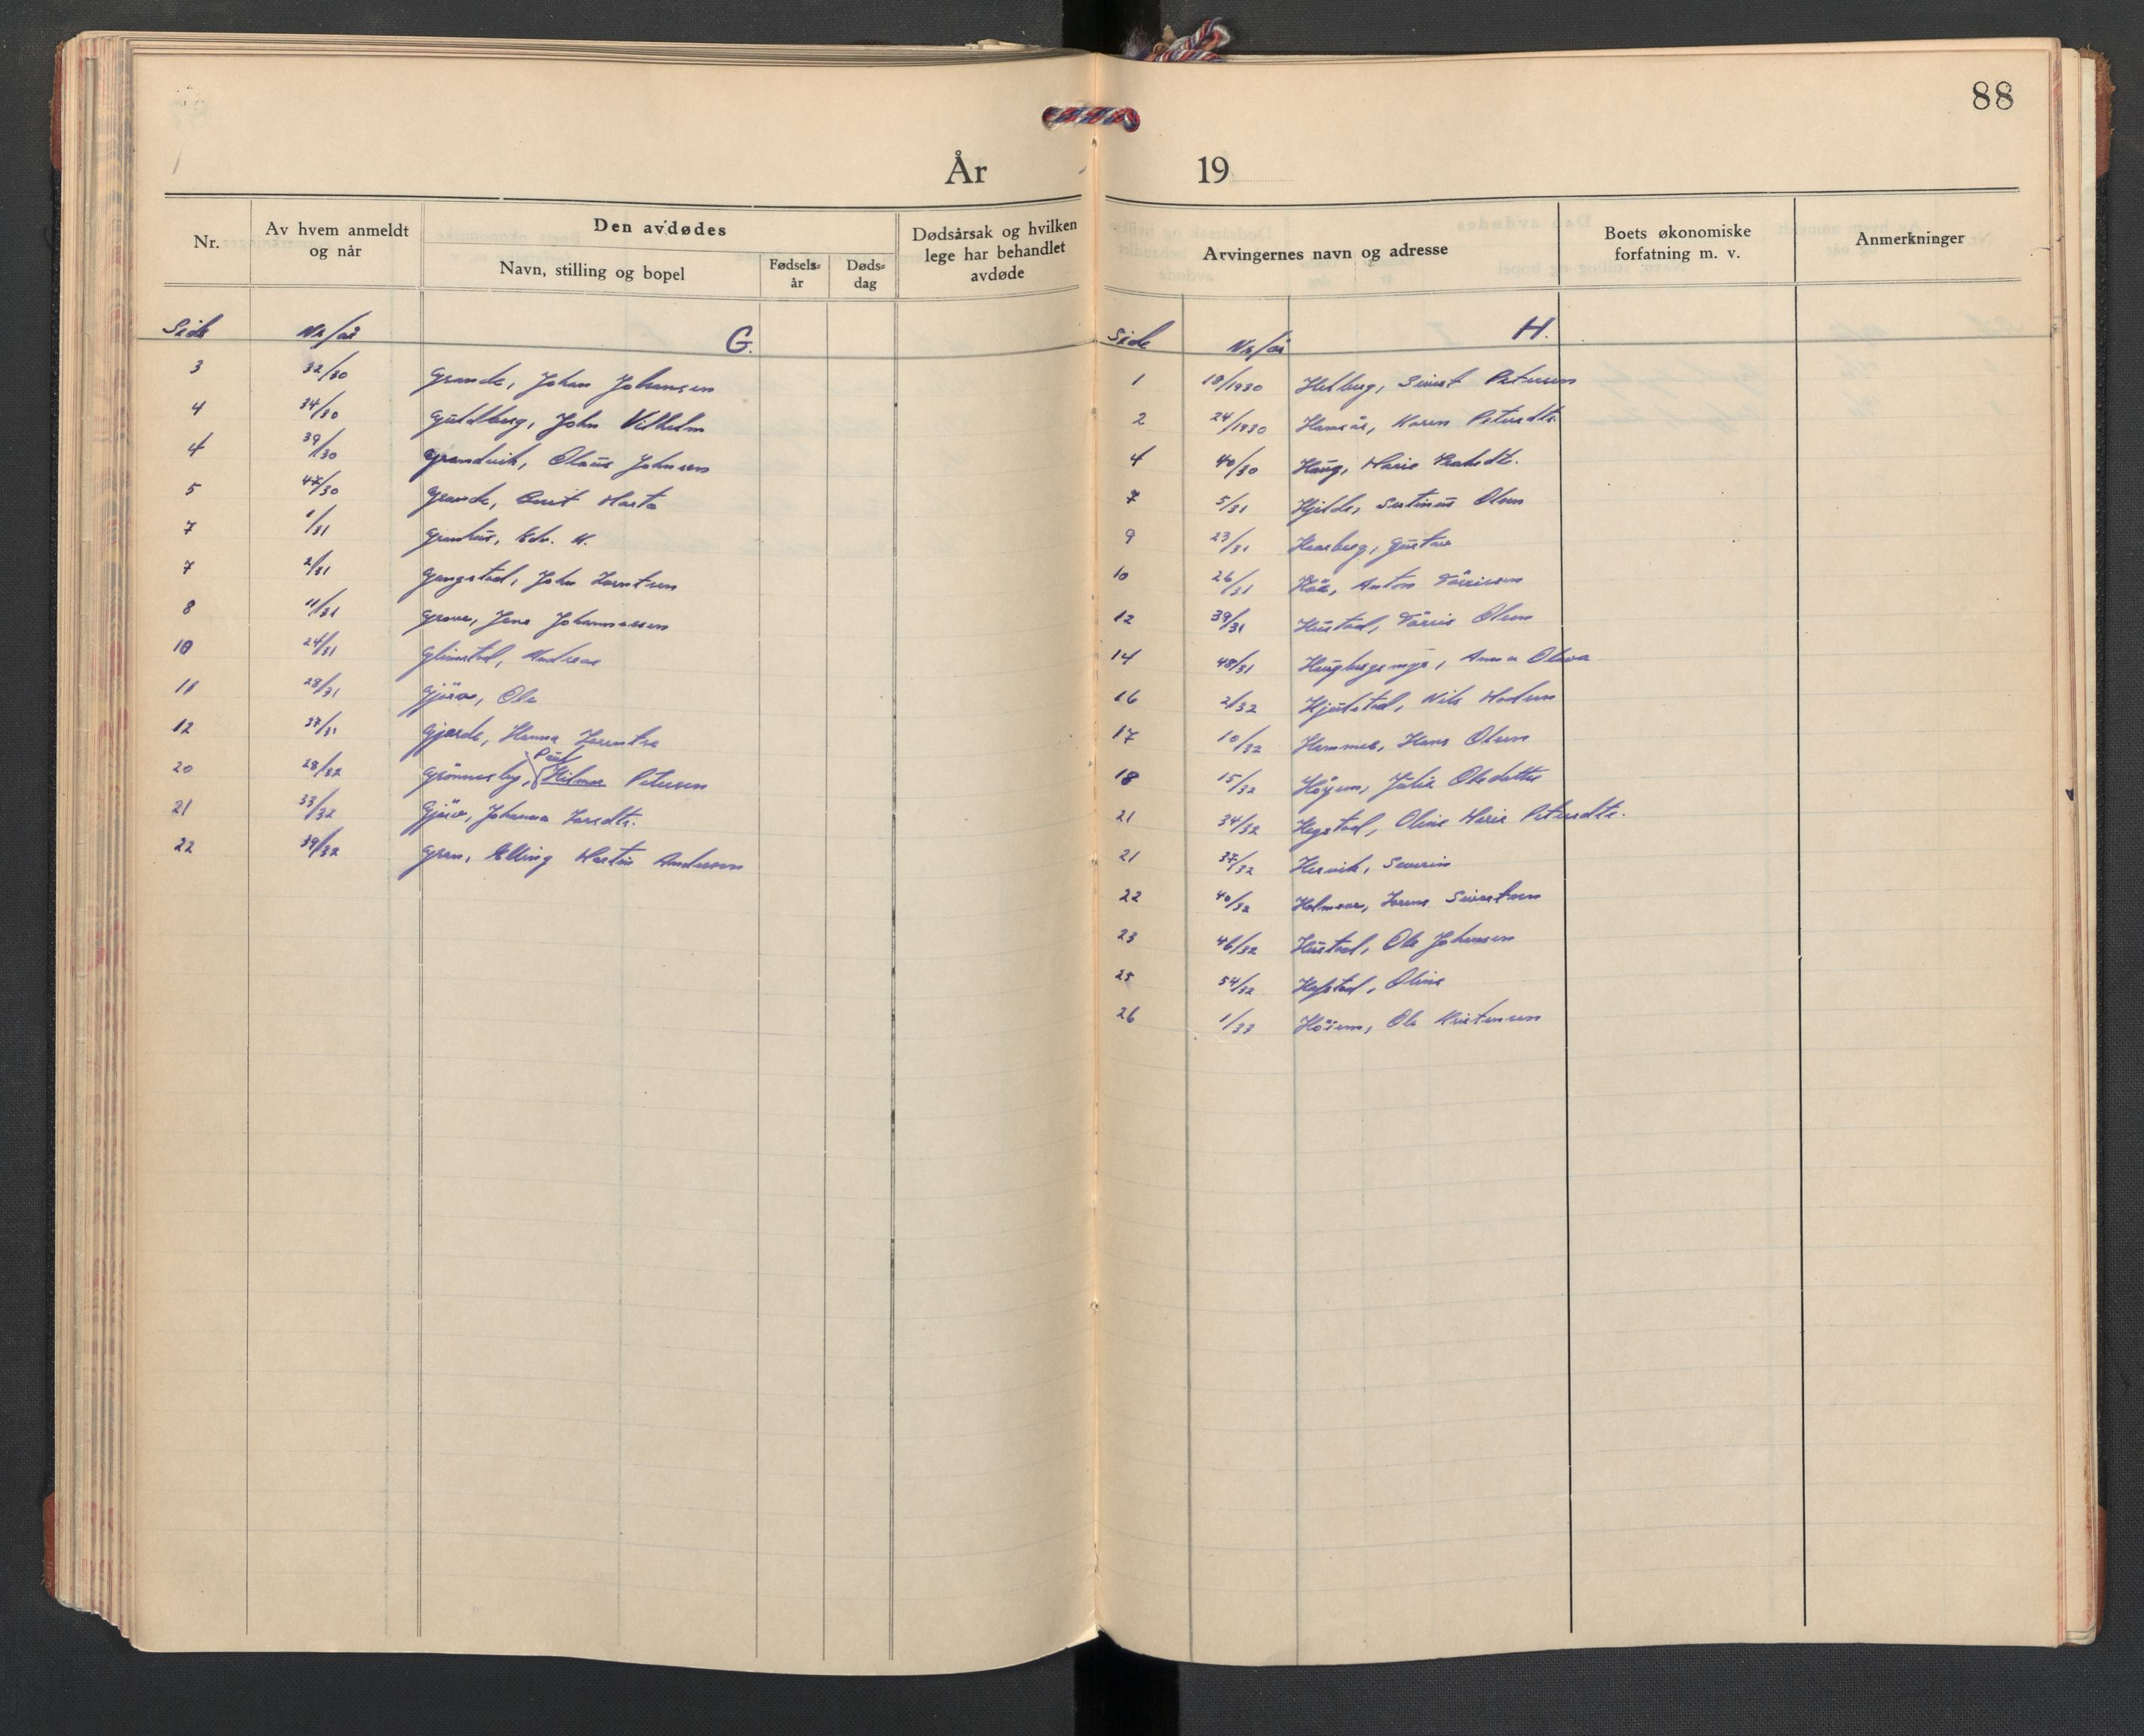 88
År 19
Nr.
Av hvem anmeldt og når
Den avdødes
Navn, stilling og bopel
Fødsels- år
Døds- dag
Dødsårsak og hvilken lege har behandlet avdøde
Arvingernes navn og adresse
Boets økonomiske forfatning m. v.
Anmerkninger
Side Nr/år G.
3 32/30 Grande, Johan Johansen
4 34/30 Guldberg, John Vilhelm
4 39/30 Grandvik, Olaus Johnsen
5 47/30 Grande, Berit Marta
7 1/31 Grenhus, Edv. K.
7 2/31 Gangstad, John Lorntsen
8 11/31 Grove, Jens Johannessen
10 24/31 Glimstad, Andreas
11 28/31 Gjörv, Ole
12 37/31 Gjærde, Hanna
20 28/32 Grönnesby, Paul Hilmar Petersen
21 33/32 Gjörv, Johanna Larsdtr.
22 39/32 Gran, Elling Martin Andersen
Side Nr/år H.
1 18/1930 Helberg, Sivert Petersen
2 24/1930 Hamrår, Karen Petersdtr.
4 40/30 Haug, Marie
7 5/31 Hjelde, Sertinus Olsen
9 23/31 Haarberg, Gustav
10 26/31 Anton Törrissen
12 39/31 Hustad, Törris Olsen
14 48/31 Haugbergsmyr, Anna Oliva
16 2/32 Hjulstad, Nils
17 10/32 Hammer, Hans Olsen
18 15/32 Höyem, Julie Olsdatter
21 34/32 Hegstad, Oline Marie Petersdtr.
21 37/32 Hervik, Severin
22 40/32 Holmvær, Lorens Sivertsen
23 46/32 Hustad, Ole Johansen
25 54/32 Hofstad, Oline
26 1/33 Höiem, Ole Kristensen